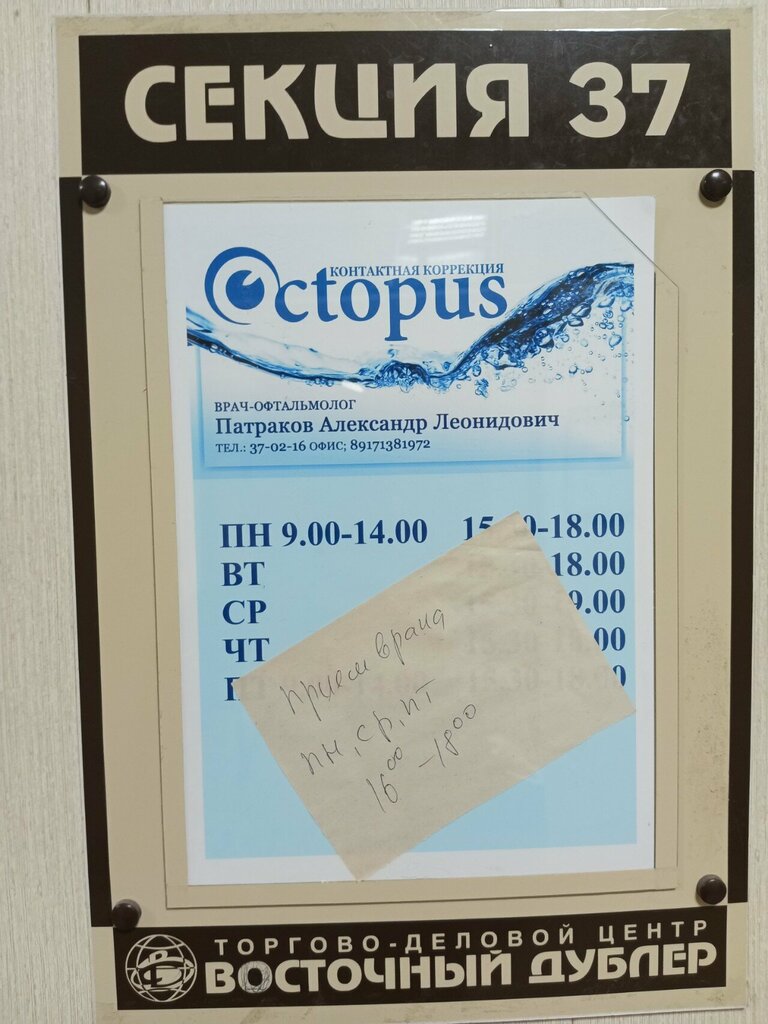 СЕКЦИЯ 37
КОНТАКТНАЯ КОРРЕКЦИЯ
Octopus
ВРАЧ-ОФТАЛЬМОЛОГ
Патраков Александр Леонидович
ТЕЛ.: 37-02-16 ОФИС; 89171381972
ПН 9.00-14.00 -18.00
ВТ 18.00
СР 9.00
ЧТ 00
прием врача
пн, ср, пт
16 00 - 18 00
ТОРГОВО-ДЕЛОВОЙ ЦЕНТР
ВОСТОЧНЫЙ ДУБЛЕР